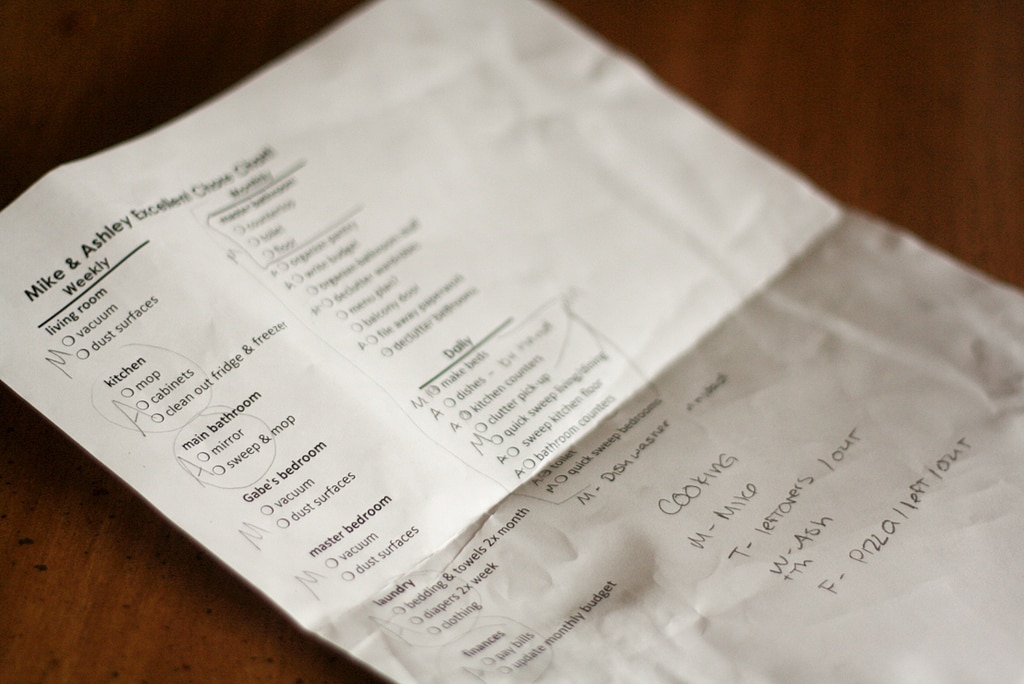 Mike & Ashley Excellent Chore Chart!
Weekly
living room
M
vacuum
dust surfaces
kitchen
A
mop
cabinets
clean out fridge & freezer
main bathroom
A
mirror
sweep & mop
Gabe's bedroom
M
vacuum
dust surfaces
master bedroom
M
vacuum
dust surfaces
laundry
A
bedding & towels 2x month
diapers 2x week
clothing
finances
A
pay bills
update monthly budget
Monthly
master bathroom
countertop
toilet
floor
A organize pantry
A write budget
organize bathroom stuff
declutter
menu plan?
balcony door
A file away paperwork
declutter bedroom
Daily
M make beds
A dishes -
A kitchen counters
M clutter pick-up
quick sweep living/dining
A sweep kitchen floor
A bathroom counters
A toilet
M quick sweep bedrooms
M - Dishwasher
COOKING
M - Mike
T - leftovers / our
W - Ash
+Th
F - Pizza / left / our